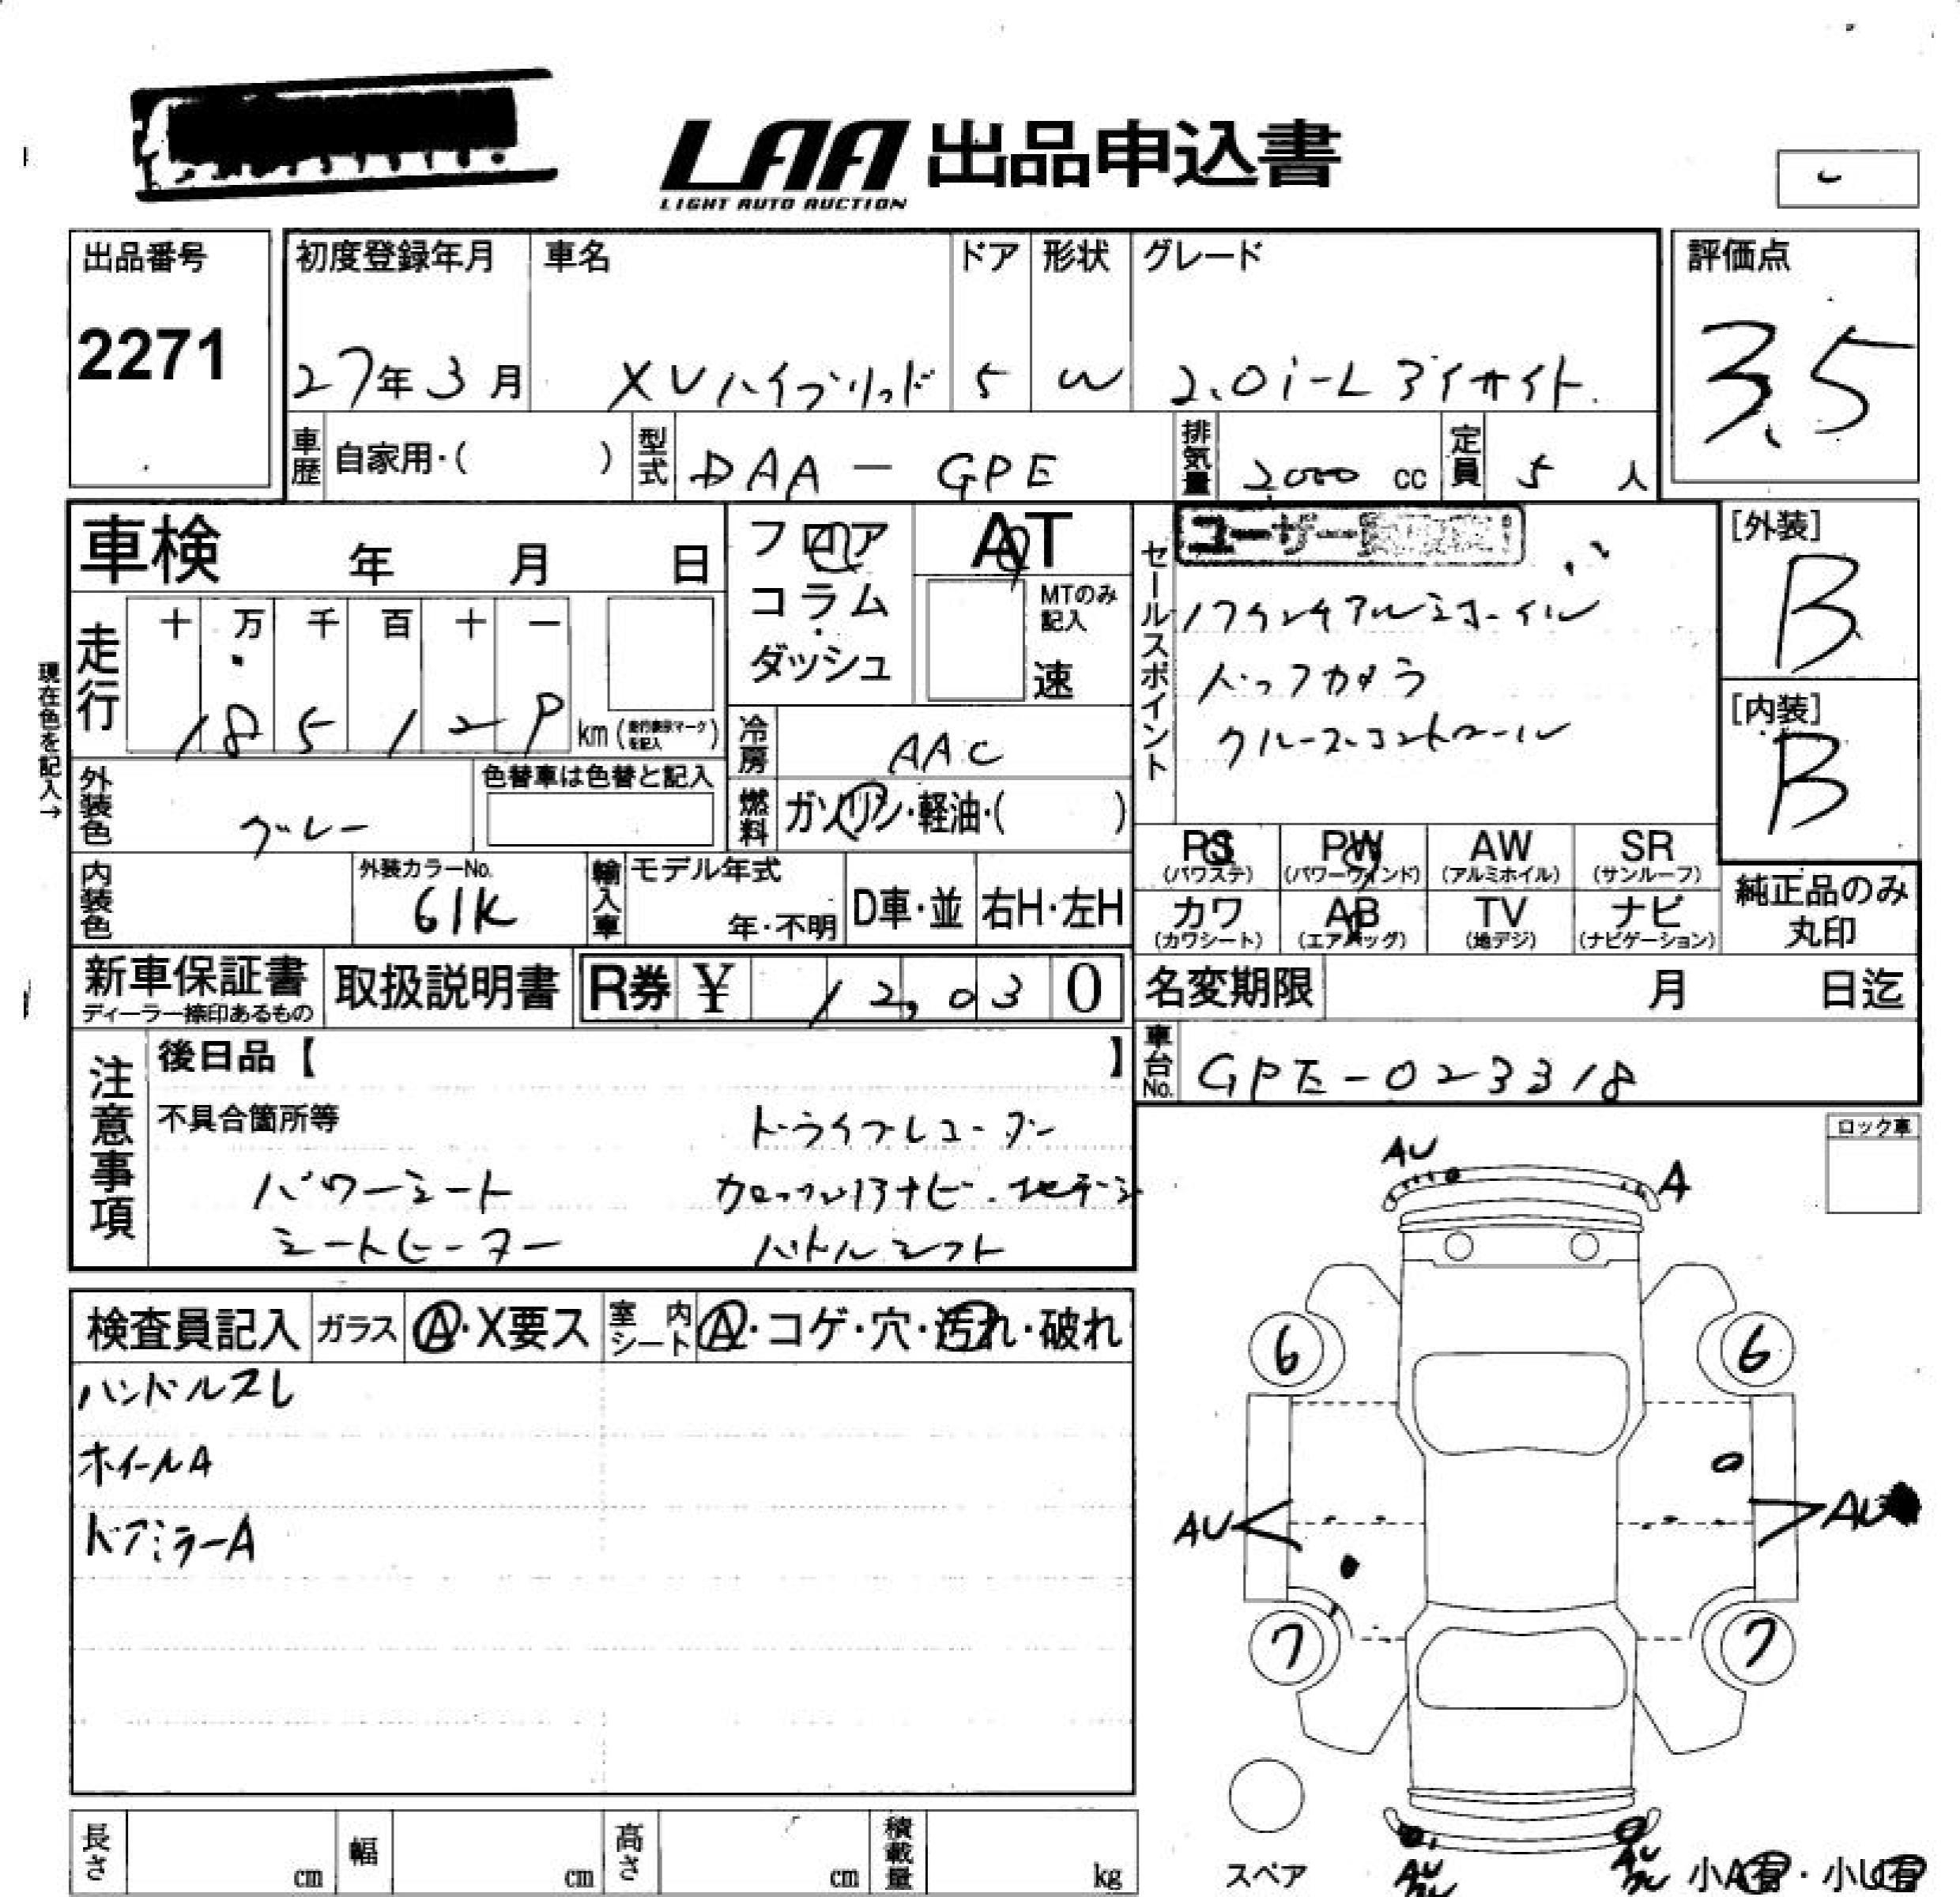 LAA 出品申込書
LIGHT AUTO AUCTION
出品番号
2271
初度登録年月 車名 ドア 形状 グレード
27年3月 XVハイブリッド 5 W 2.0i-Lアイサイト
評価点
3.5
車歴 自家用・( ) 型式 DAA-GPE 排気量 2000 cc 定員 5 人
車検 年 月 日
フロア
コラム
ダッシュ
AT
MTのみ
記入
速
現在色を記入→
走行 十 万 千 百 十 一
km
冷房 AAC
燃料 ガソリン・軽油・( )
外装色 グレー
色替車は色替と記入
内装色
外装カラーNo.
61K
輸入車 モデル年式
年・不明
D車・並 右H・左H
セールスポイント
ユーザー
17インチアルミホイール
バックカメラ
クルーズコントロール
[外装]
B
[内装]
B
PS
(パワステ)
PW
(パワーウインド)
AW
(アルミホイル)
SR
(サンルーフ)
カワ
(カワシート)
AB
(エアバッグ)
TV
(地デジ)
ナビ
(ナビゲーション)
純正品のみ
丸印
新車保証書
ディーラー捺印あるもの
取扱説明書
R券 ¥ 12,030
名変期限 月 日迄
車台No. GPE-023318
注意事項
後日品【 】
不具合箇所等
ドライブレコーダー
パワーシート
シートヒーター
パドルシフト
ロック車
検査員記入 ガラス A・X要ス 室内シート A・コゲ・穴・汚れ・破れ
ハンドルスレ
ホイールA
ドアミラーA
AU
A
6
6
AU
AU
7
7
AU
AU
スペア
小A有・小U有
長さ cm 幅 cm 高さ cm 積載量 kg